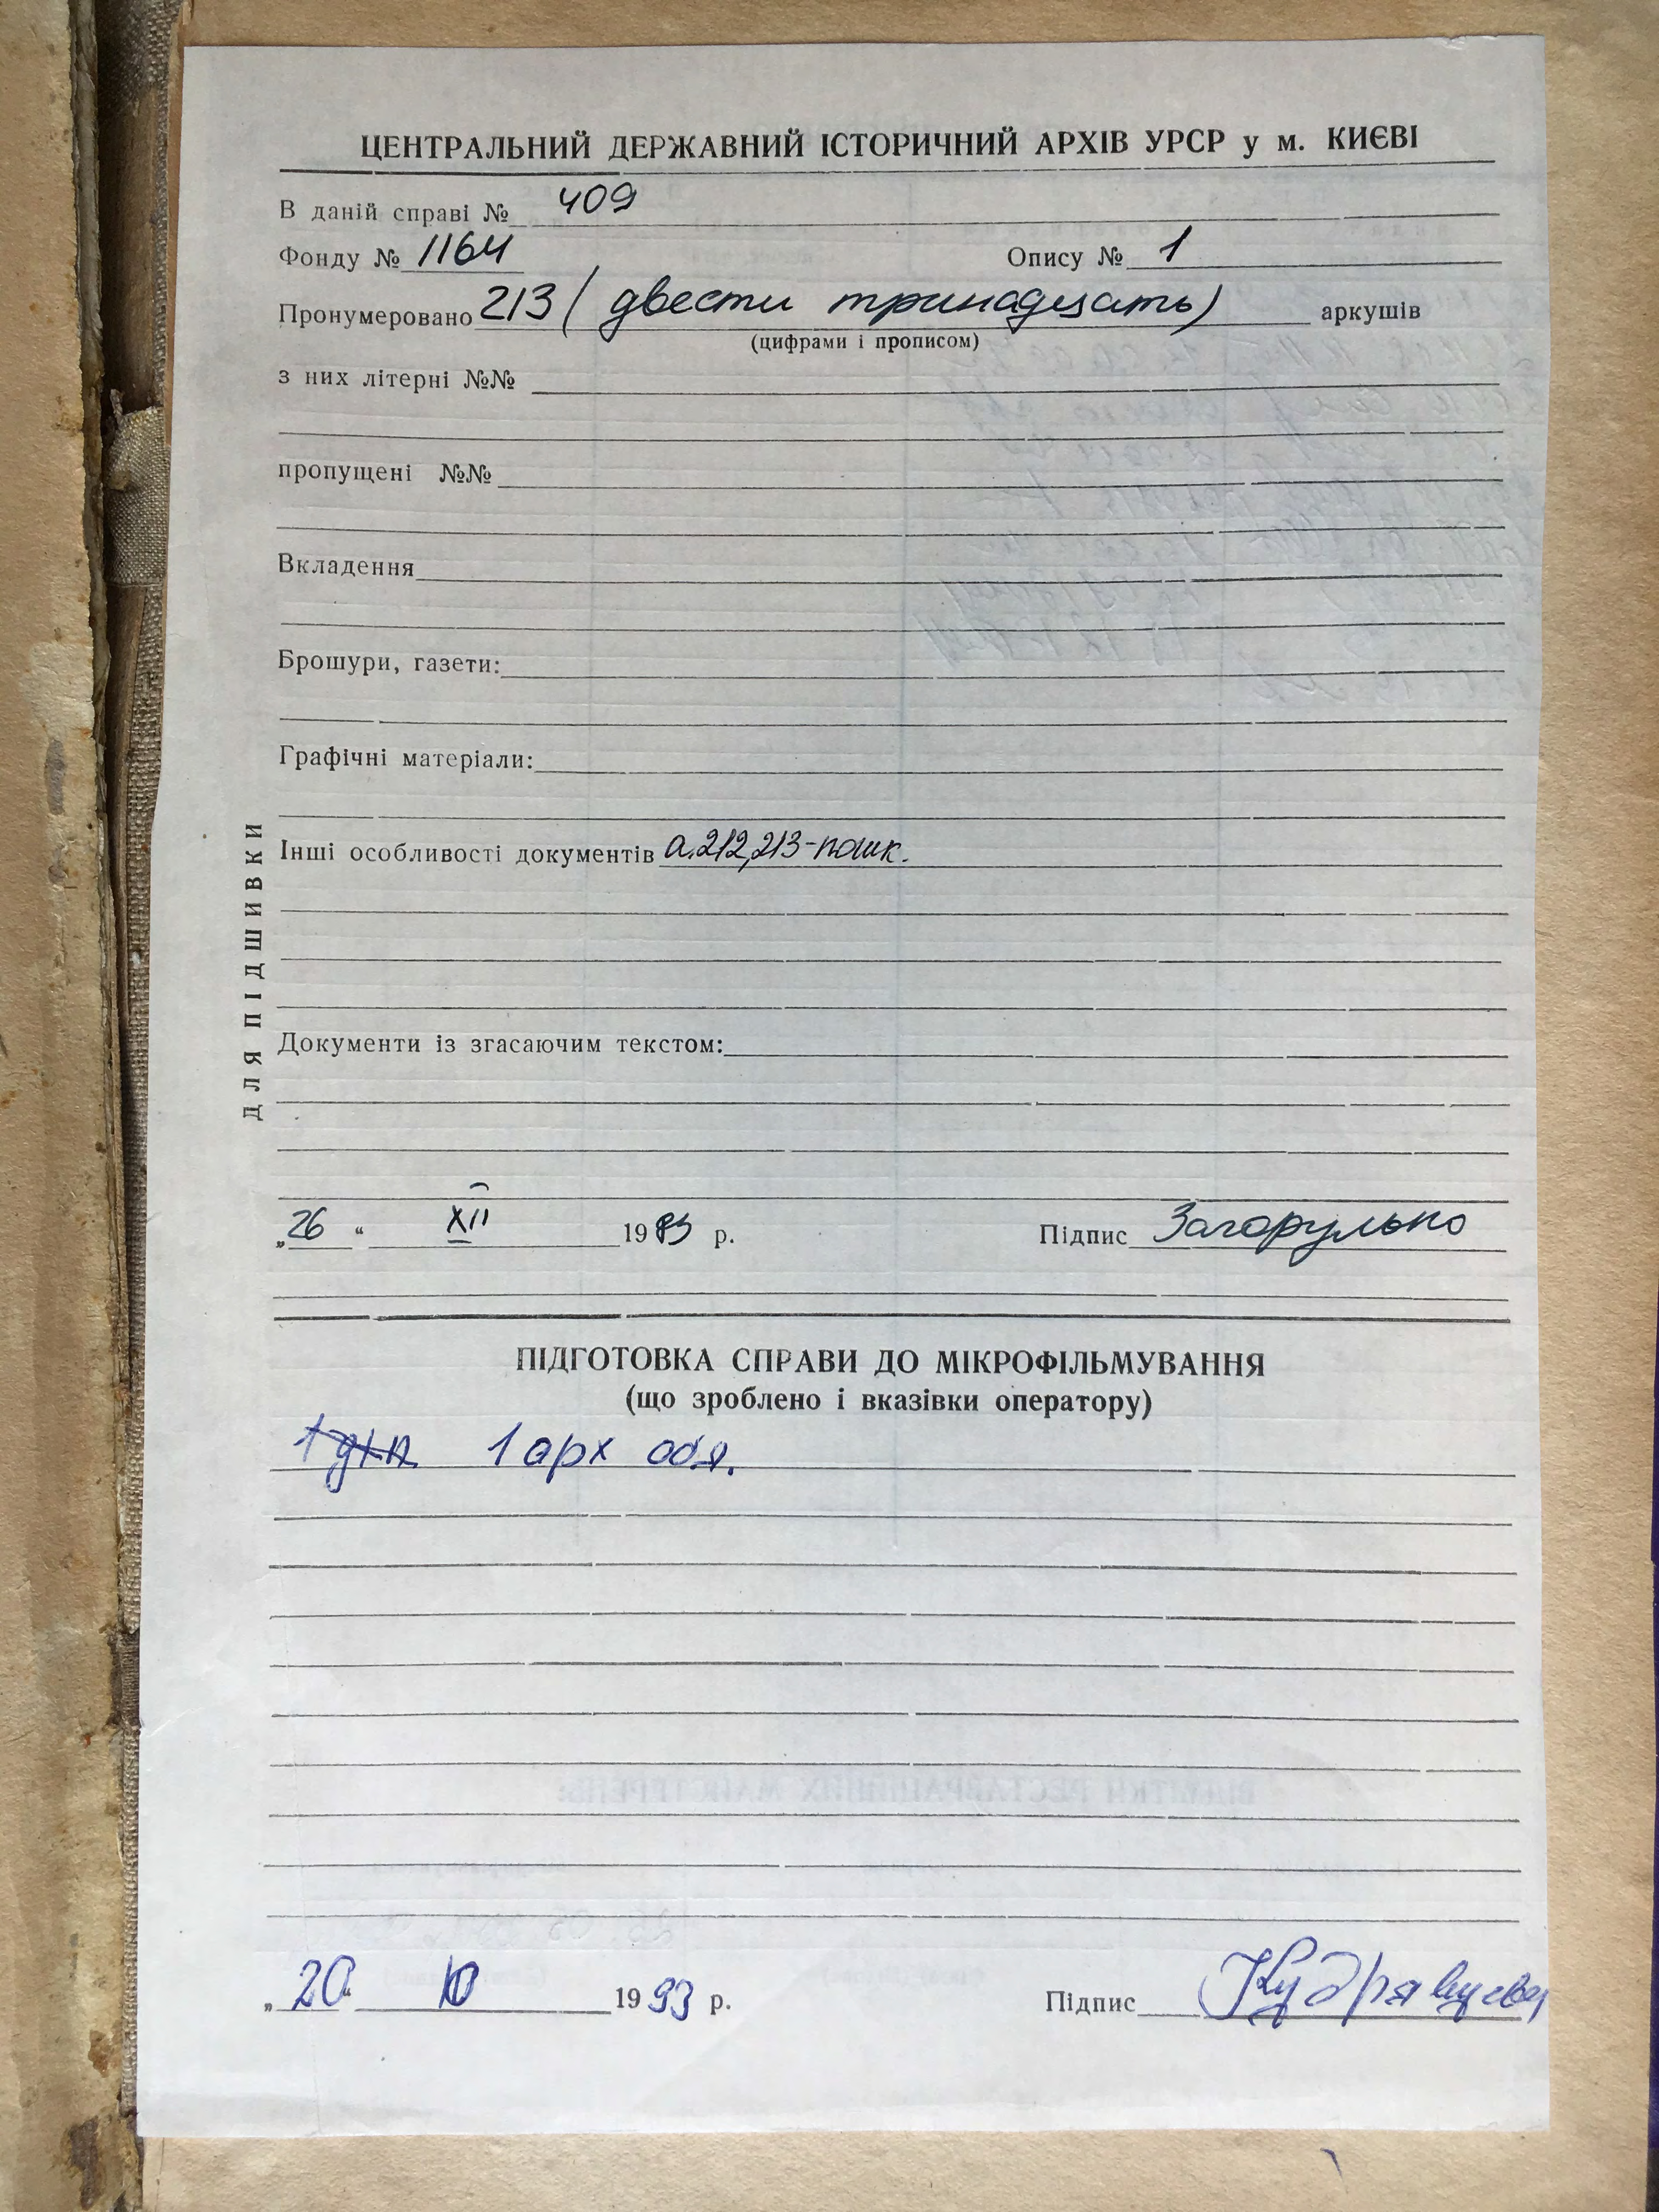 ЦЕНТРАЛЬНИЙ ДЕРЖАВНИЙ ІСТОРИЧНИЙ АРХІВ УРСР у м. КИЄВІ
В даній справі № 409
Фонду № 1164 Опису № 1
Пронумеровано 213 (двести тринадцать) аркушів
(цифрами і прописом)
з них літерні №№
пропущені №№
Вкладення
Брошури, газети:
Графічні матеріали:
Інші особливості документів а.212,213-пошк.
Документи із згасаючим текстом:
ДЛЯ ПІДШИВКИ
„26“ XII 19 р. Підпис Загорулько
ПІДГОТОВКА СПРАВИ ДО МІКРОФІЛЬМУВАННЯ
(що зроблено і вказівки оператору)
1 арх обл.
„20“ 10 1993 р. Підпис Кудрявцева